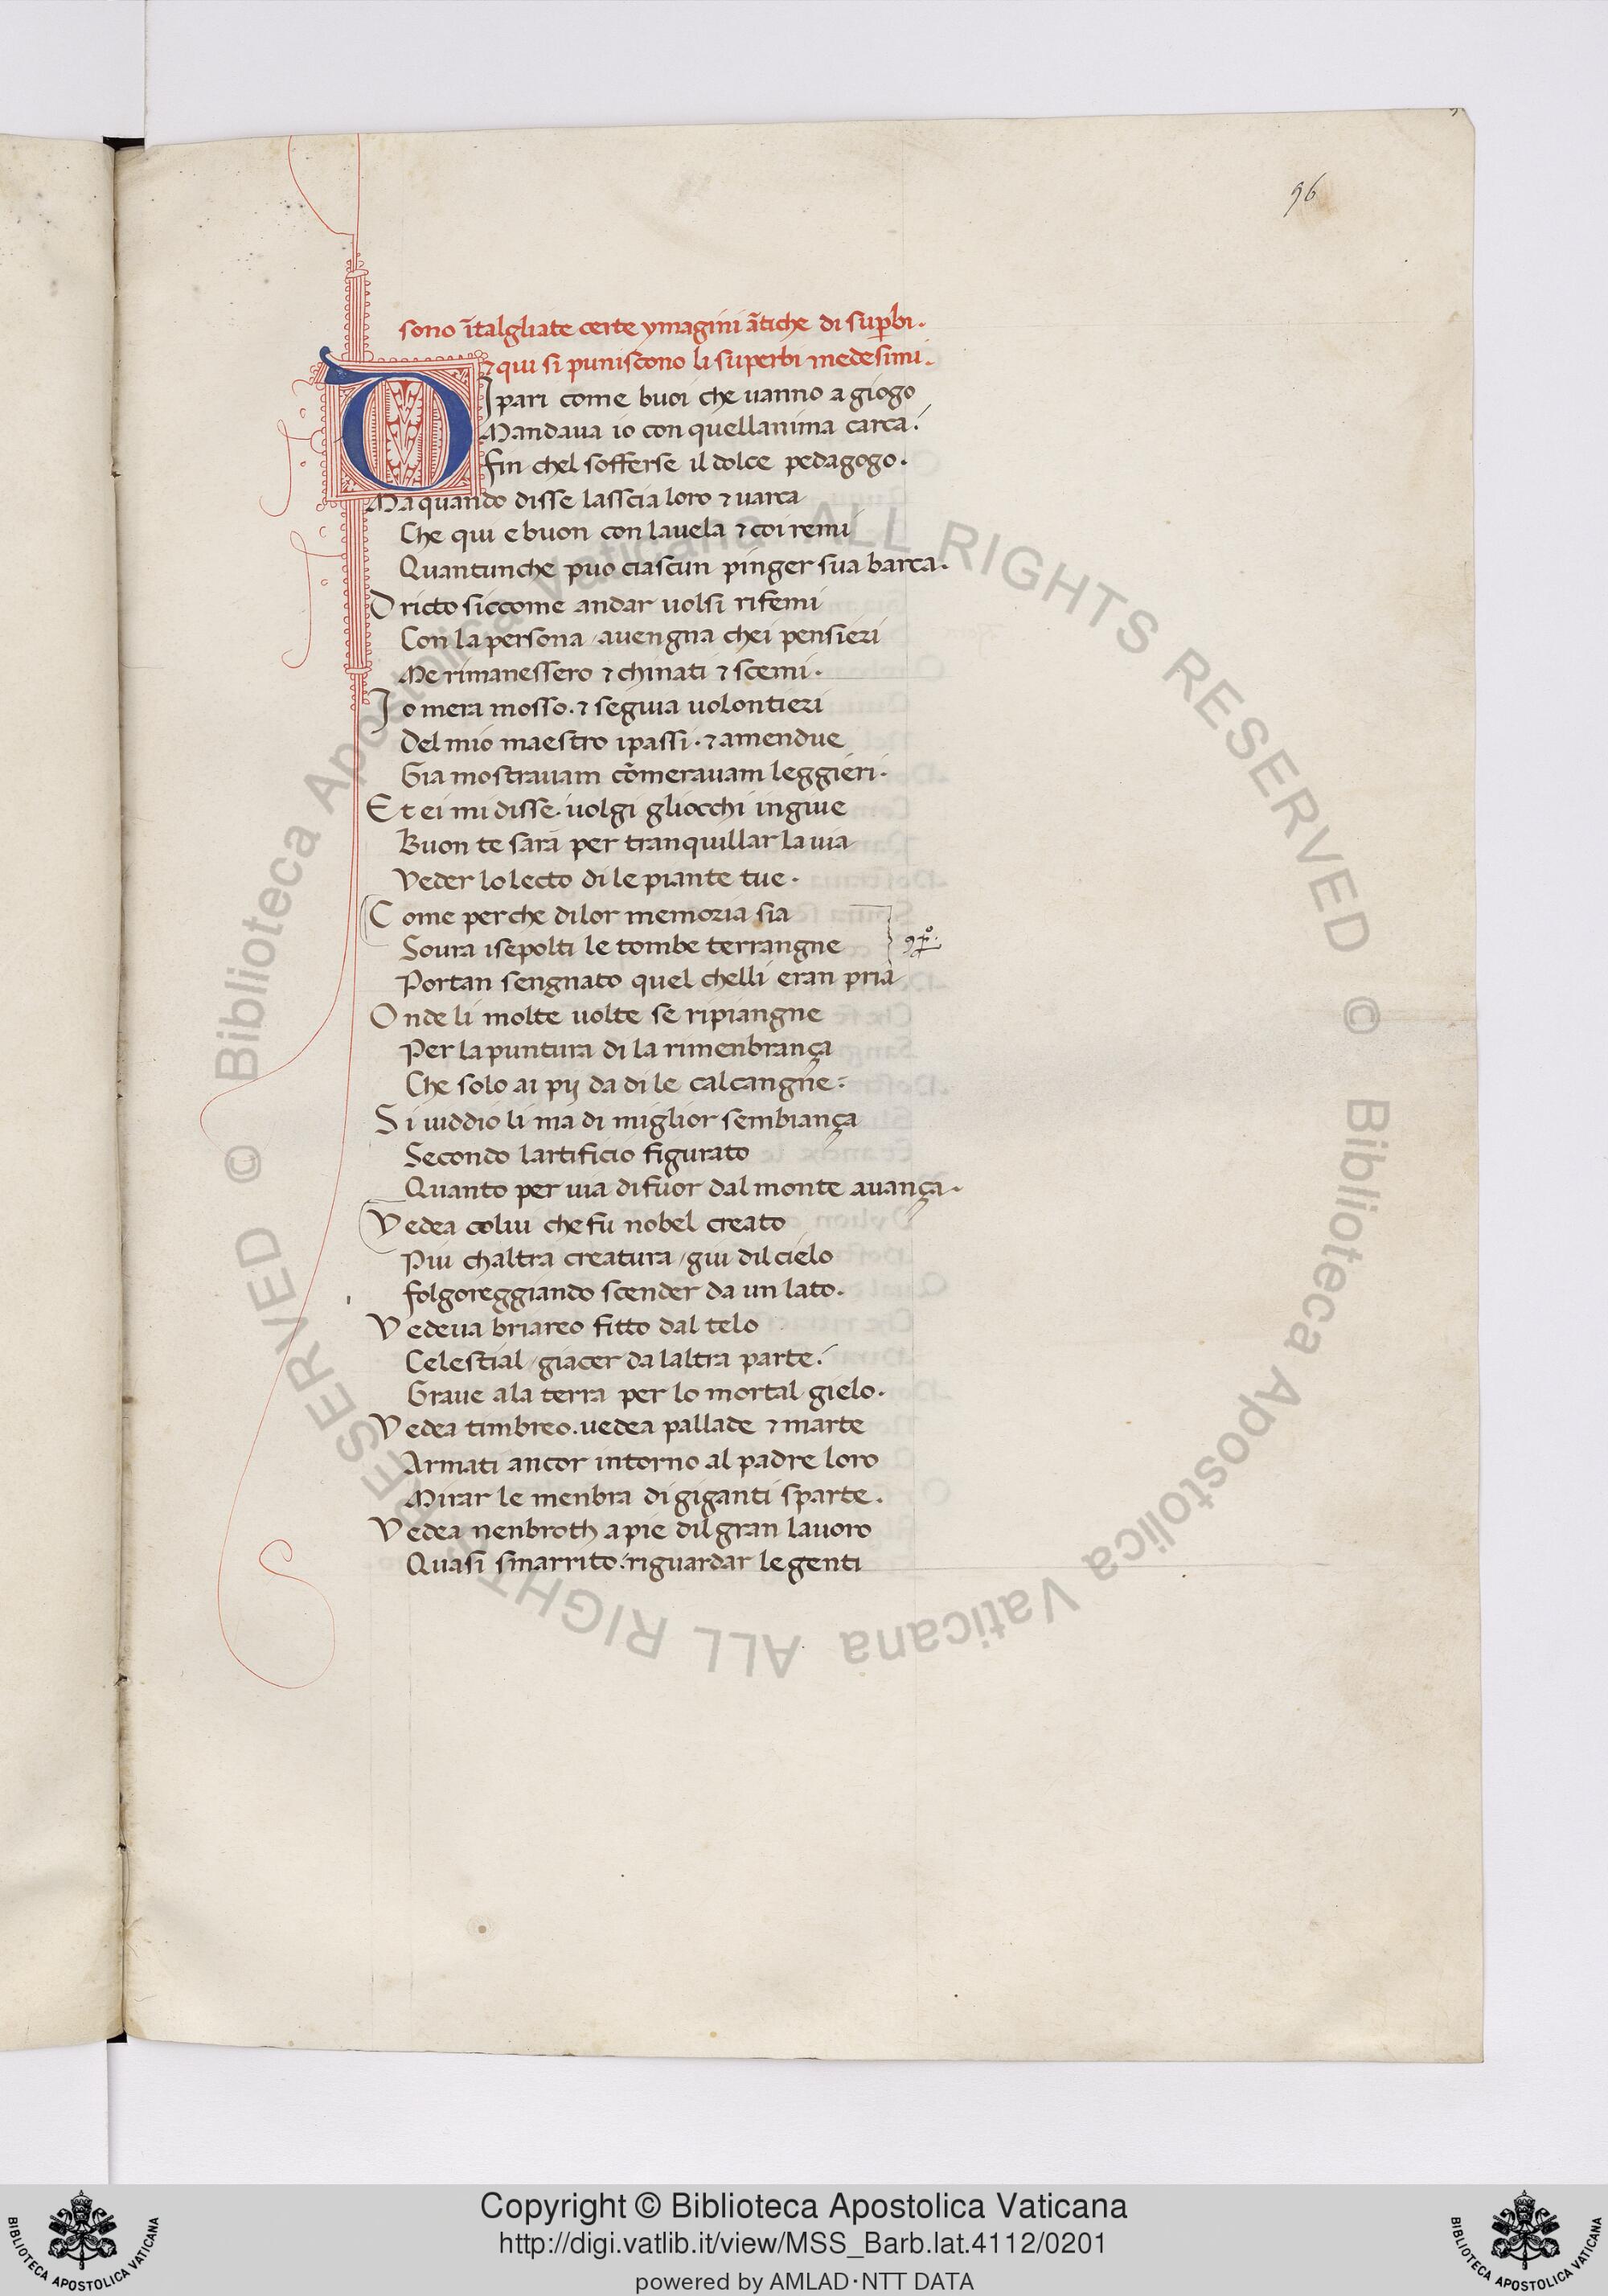 96
sono ītalgliate certe ymagini ātiche di suꝑbi.
⁊ qui si puniscono li superbi medesimi.
DI pari come buoi che uanno a giogo
Mandaua io con quellanima carca.
fin chel sofferse il dolce pedagogo.
Ma quando disse lasscia loro ⁊ uarca
Che qui e buon con lauela ⁊ coi remi
Quantunche puo ciascun pinger sua barca.
Dricto siccome andar uolsi rifemi
Con la persona / auengna chei pensieri
Me rimanessero ⁊ chinati ⁊ scemi.
Io mera mosso. ⁊ seguia uolontieri
Del mio maestro ipassi. ⁊ amendue
Gia mostrauam cōmerauam leggieri.
Et ei mi disse. uolgi gliocchi ingiue
Buon te sara per tranquillar la uia
Veder lo lecto di le piante tue.
Come perche dilor memoria sia
Soura isepolti le tombe terrangne
Portan sengnato quel chelli eran pria
Onde li molte uolte se ripiangne
Per la puntura di la rimenbrança
Che solo ai pij da di le calcangne.
Si uiddio li ma di miglior sembiança
Secondo lartificio figurato
Quanto per uia di fuor dal monte auança.
Vedea colui che fu nobel creato
Piu chaltra creatura / giu dil cielo
folgoreggiando scender da un lato.
Vedeua briareo fitto dal telo
Celestial / giacer da laltra parte.
Graue a la terra per lo mortal gielo.
Vedea timbreo. uedea pallade ⁊ marte
Armati ancor intorno al padre loro
Mirar le menbra di giganti sparte.
Vedea nenbroth a pie dil gran lauoro
Quasi smarrito. riguardar le genti
© Biblioteca Apostolica Vaticana ALL RIGHTS RESERVED © Biblioteca Apostolica Vaticana ALL RIGHTS RESERVED
BIBLIOTECA APOSTOLICA VATICANA
Copyright © Biblioteca Apostolica Vaticana
http://digi.vatlib.it/view/MSS_Barb.lat.4112/0201
powered by AMLAD·NTT DATA
BIBLIOTECA APOSTOLICA VATICANA